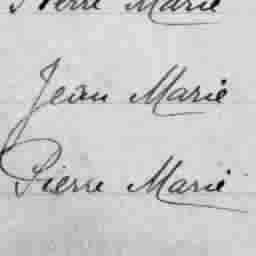 Pierre Marie
Jean Marie
Pierre Marie